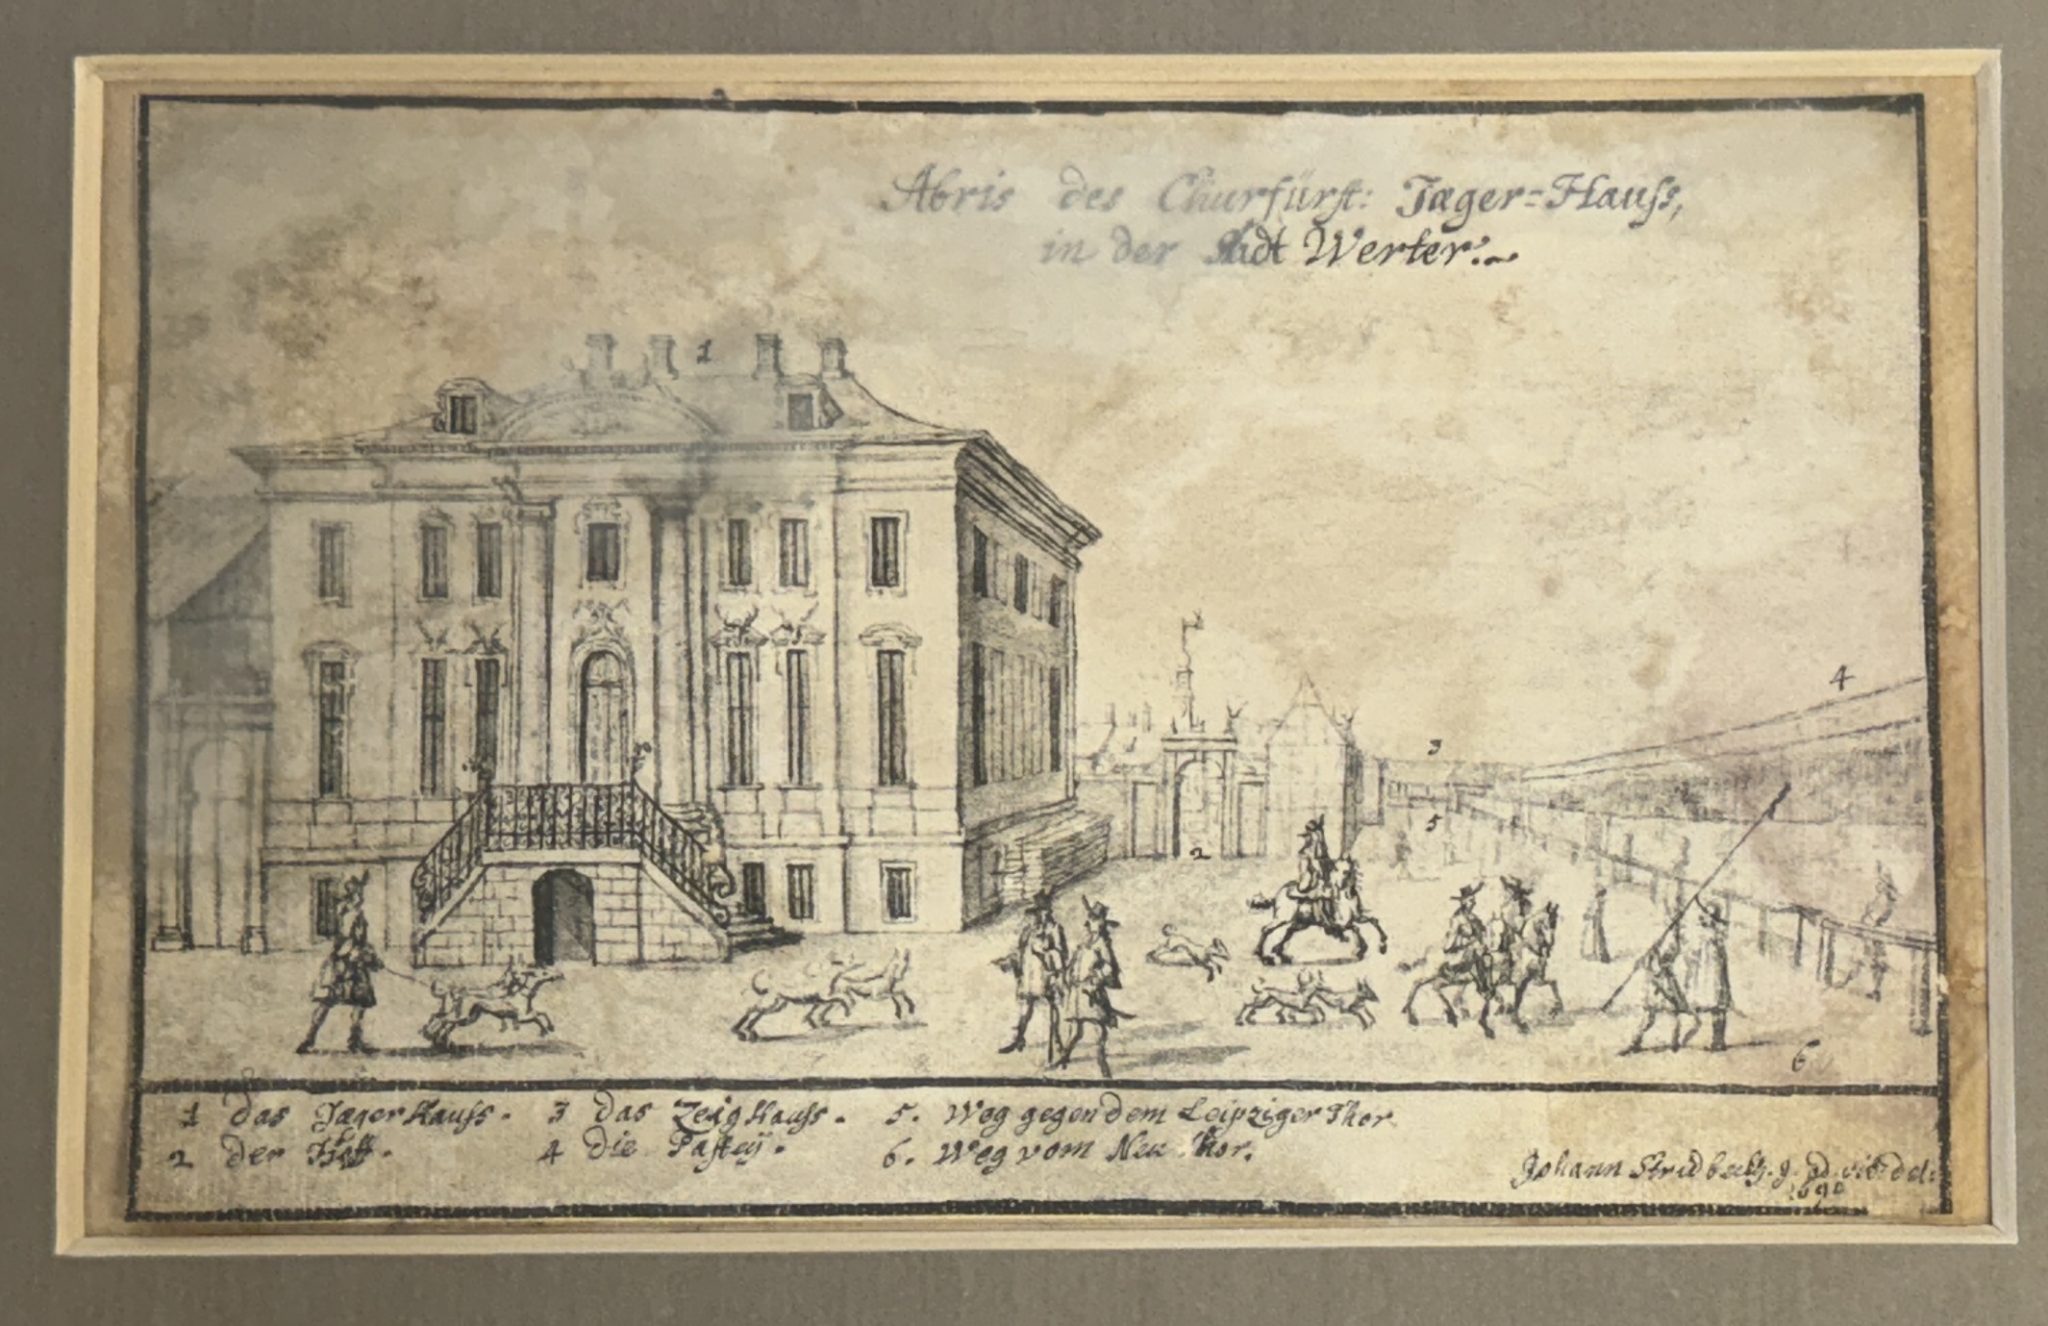 Abris des Churfürst: Jæger=Hauſs,
in der Stadt Werter.
1
4
3
5
2
6
1 das Jæger Hauſs. 3 das Zeüg Hauſs. 5. Weg gegen dem Leipziger Thor.
2 der Hoff. 4 die Paſteÿ. 6. Weg vom Neu Thor.
Johann Stridbeck. j. ad. viv. del:
1690